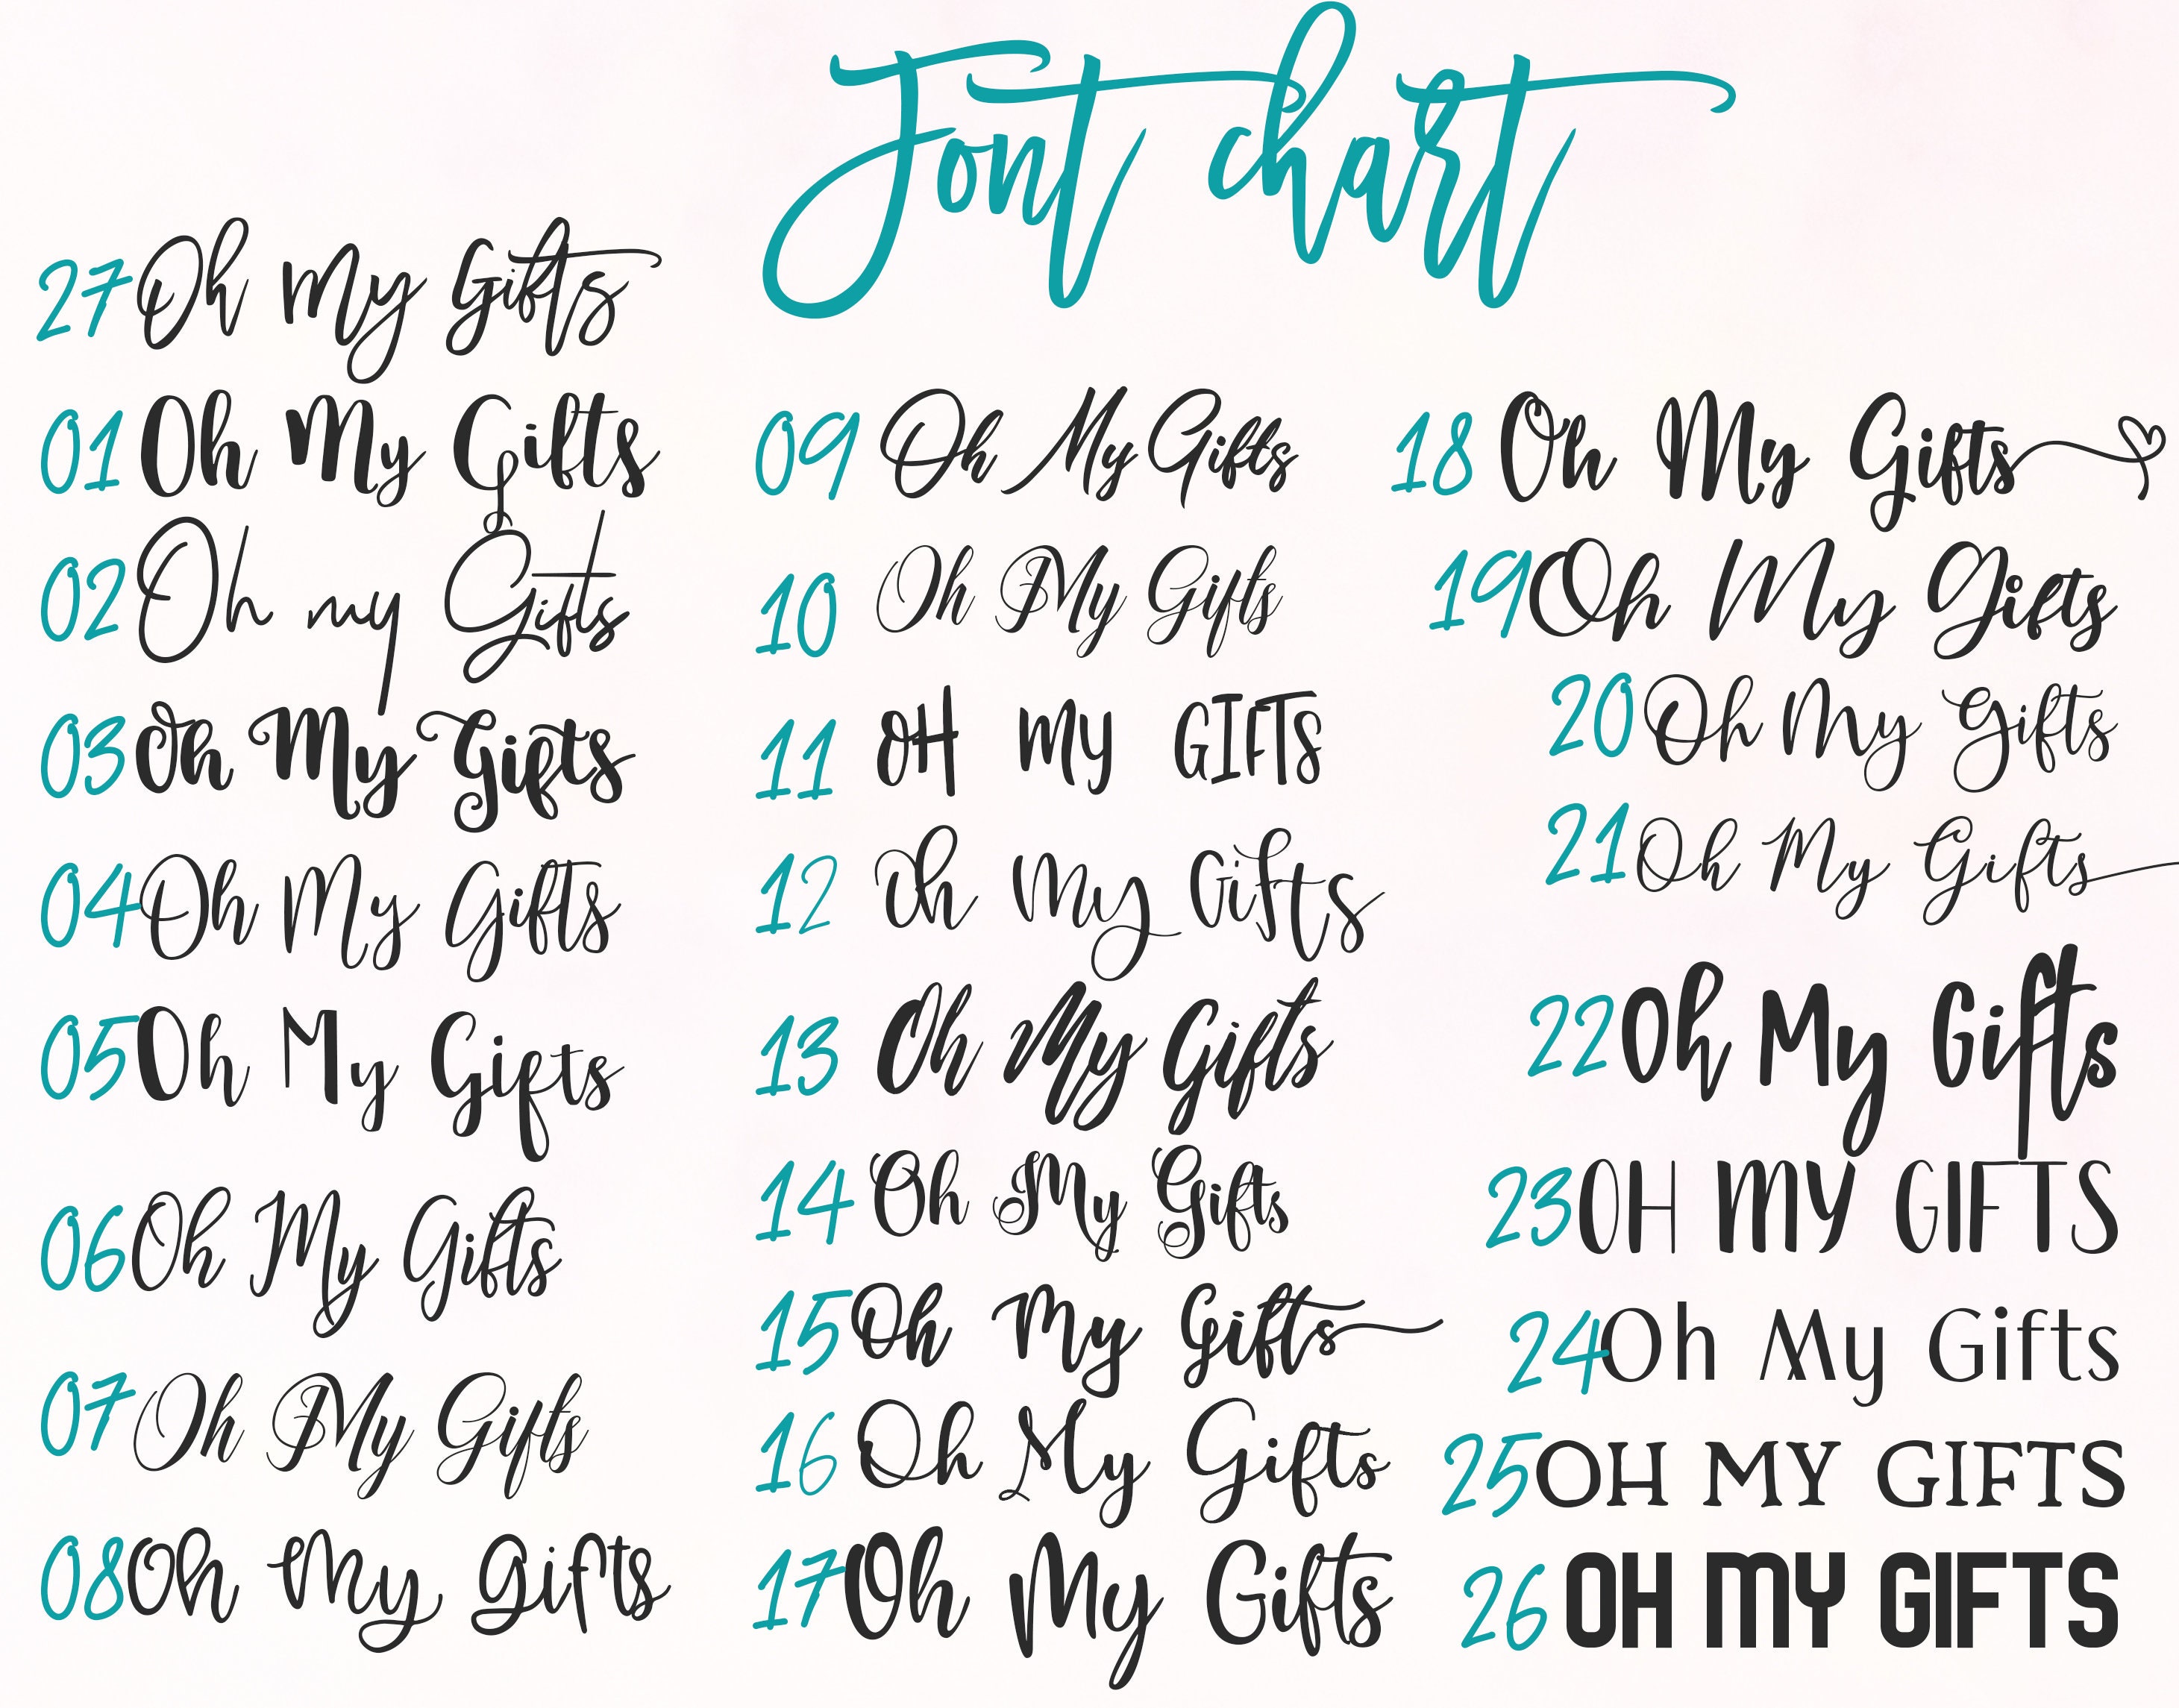 Font chart
27 Oh My Gifts
01 Oh My Gifts
02 Oh my Gifts
03 Oh My Gifts
04 Oh My Gifts
05 Oh My Gifts
06 Oh My Gifts
07 Oh My Gifts
08 Oh My Gifts
09 Oh My Gifts
10 Oh My Gifts
11 OH MY GIFTS
12 Oh My Gifts
13 Oh My Gifts
14 Oh My Gifts
15 Oh My Gifts
16 Oh My Gifts
17 Oh My Gifts
18 Oh My Gifts
19 Oh My Gifts
20 Oh My Gifts
21 Oh My Gifts
22 Oh My Gifts
23 OH MY GIFTS
24 Oh My Gifts
25 OH MY GIFTS
26 OH MY GIFTS